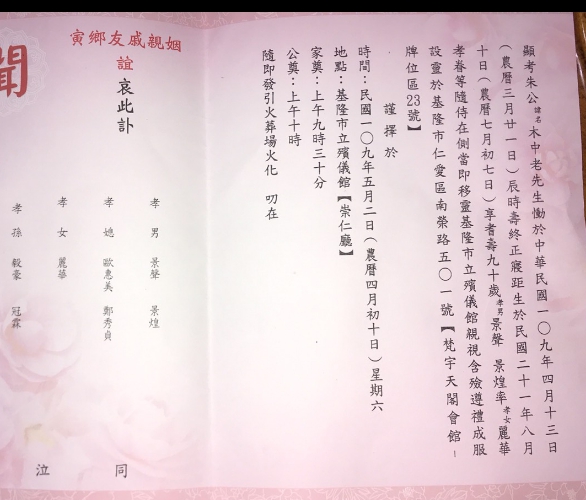 顯考朱公諱名木中老先生慟於中華民國一〇九年四月十三日
（農曆三月廿一日）辰時壽終正寢距生於民國二十一年八月
十日（農曆七月初七日）享耆壽九十歲孝男景聲 景煌率孝女麗華
孝眷等隨侍在側當即移靈基隆市立殯儀館親視含殮遵禮成服
設靈於基隆市仁愛區南榮路五〇一號【梵宇天閣會館－
牌位區23號】
謹擇於
時間：民國一〇九年五月二日（農曆四月初十日）星期六
地點：基隆市立殯儀館【崇仁廳】
家奠：上午九時三十分
公奠：上午十時
隨即發引火葬場火化 叨在
寅鄉友戚親姻
誼
哀此訃
聞
孝男 景聲 景煌
孝媳 歐惠美 鄭秀貞
孝女 麗華
孝孫 毅豪 冠霖
泣 同